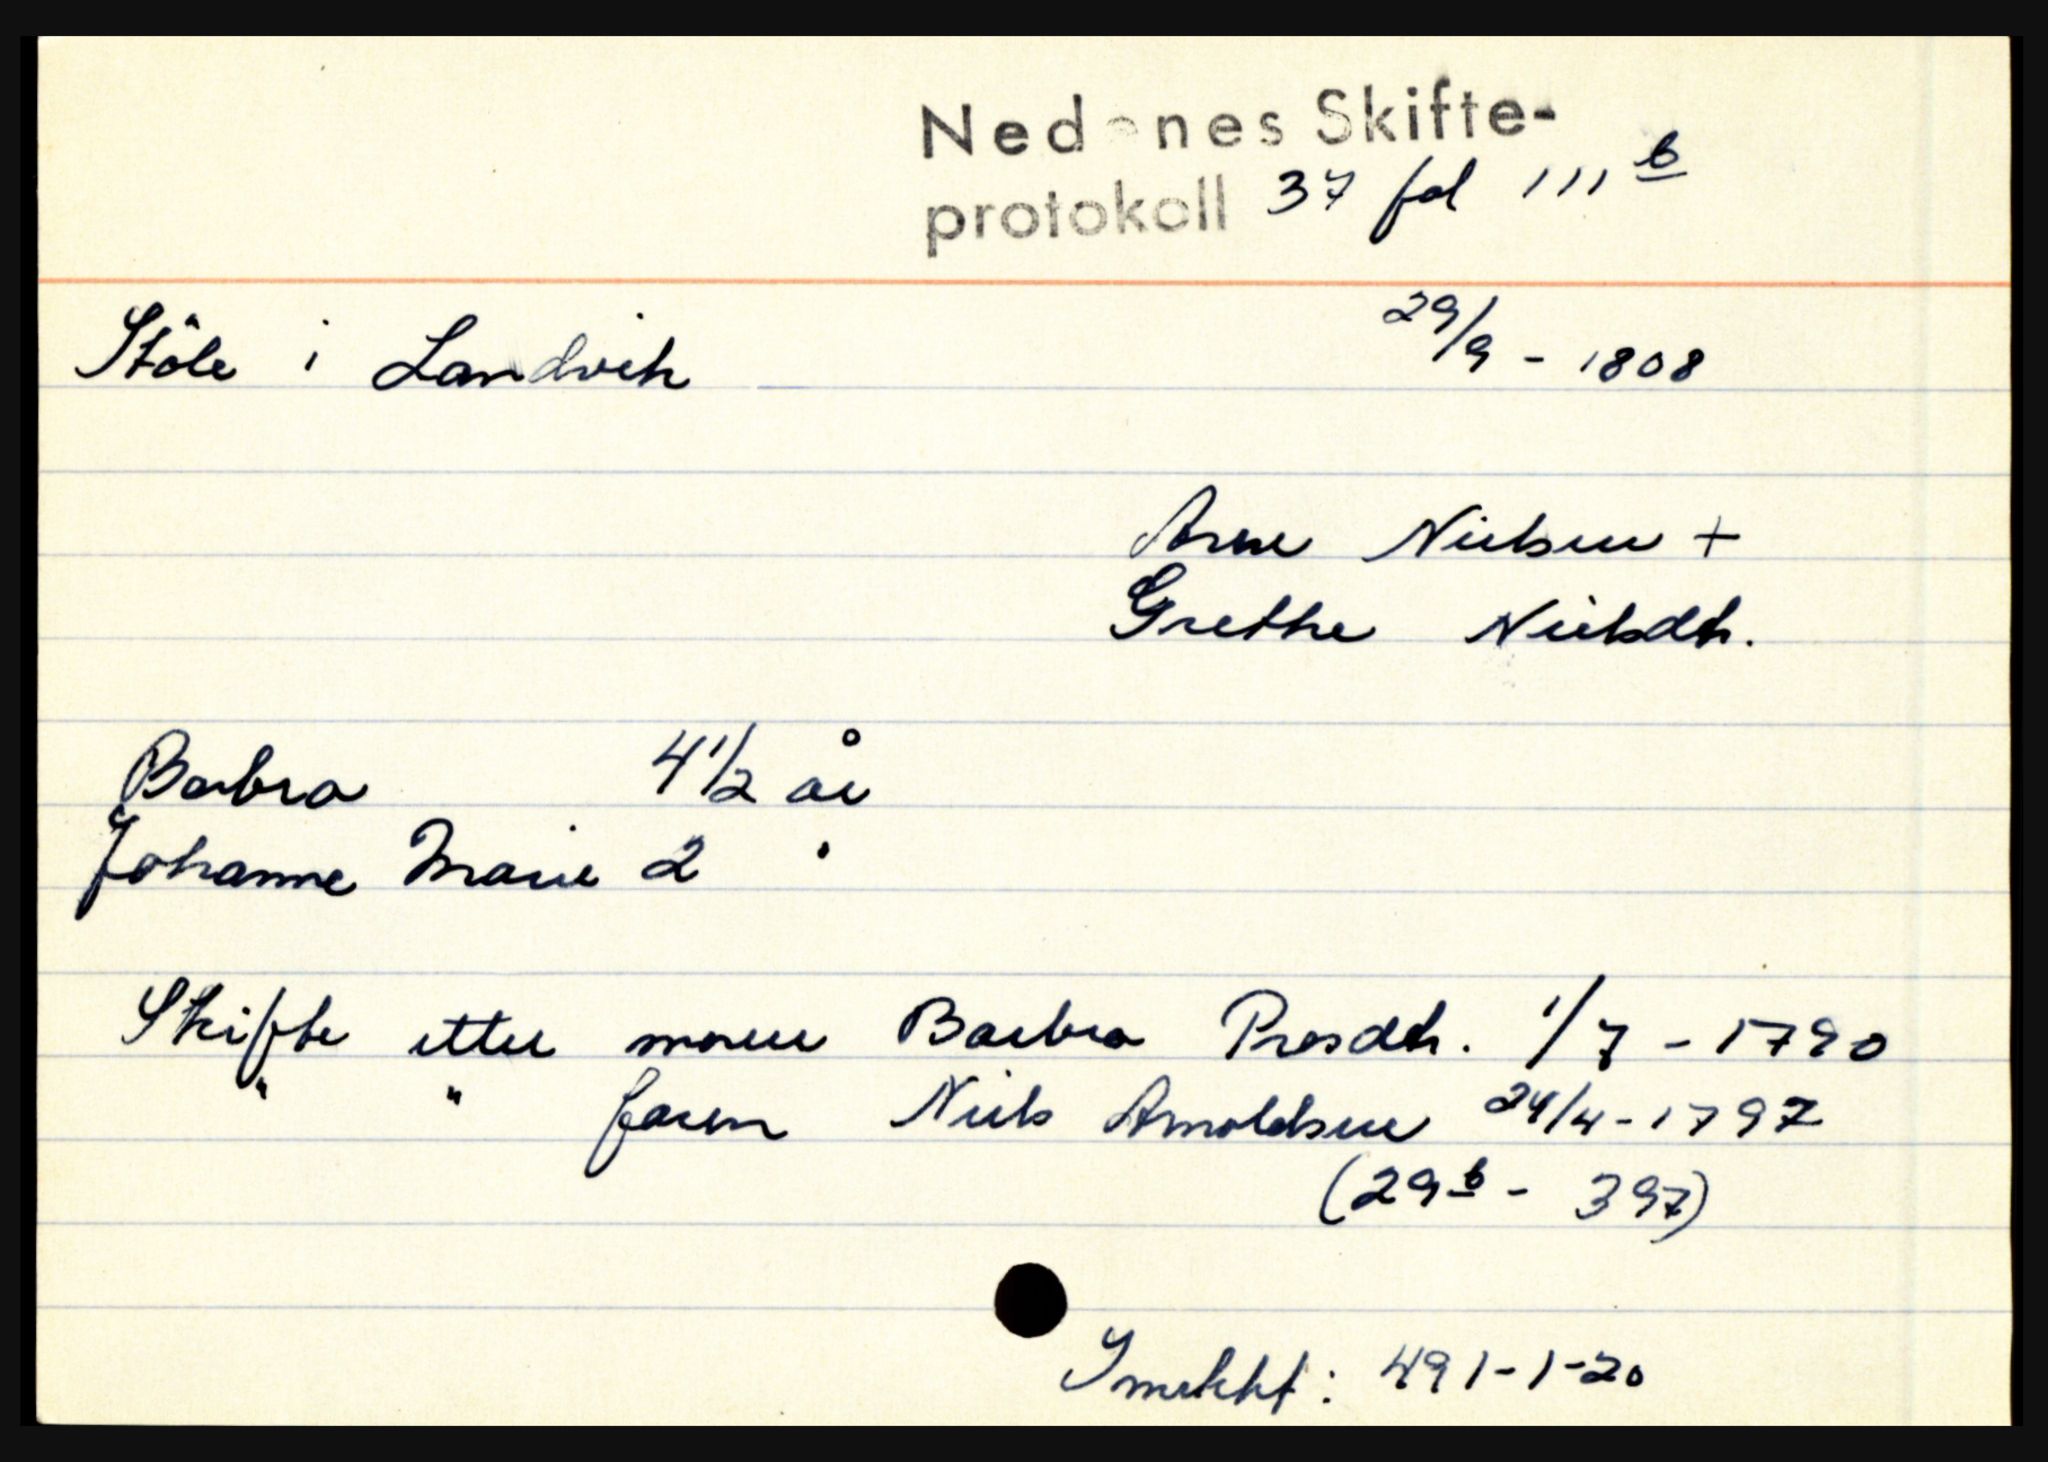 Nedenes Skifte-
protokoll 37 fol 111 b
Støle i Landvik 29/9 - 1808
Arne Nielsen +
Grethe Nielsdtr.
Barbra 4 1/2 år
Johanne Marie 2 "
Skifte etter moren Barbra Prosdtr. 1/7 - 1790
" " faren Niels Arnoldsen 24/4 - 1797
(29 b - 397)
Inntekt: 491-1-20